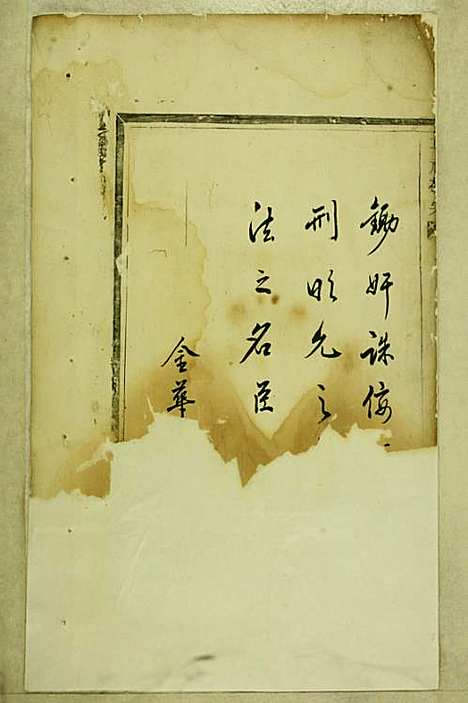 鋤奸誅佞
刑明允之
法之名臣
金華